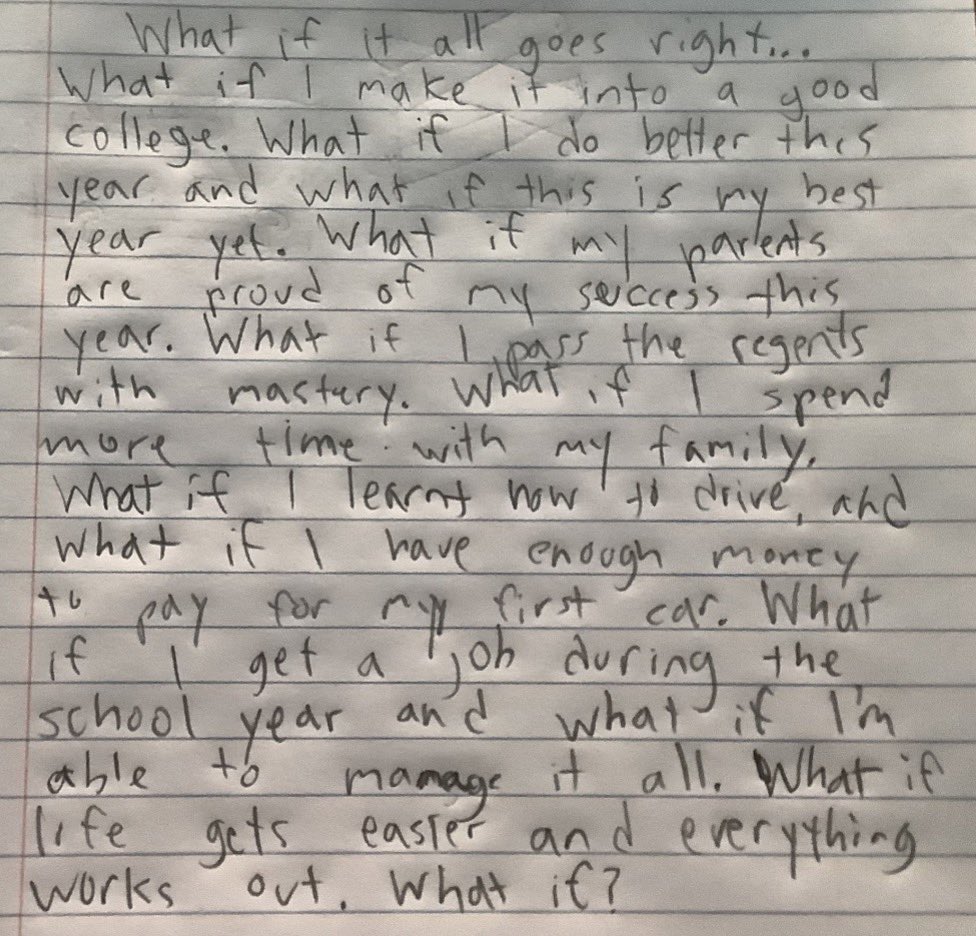 What if it all goes right...
What if I make it into a good
college. What if I do better this
year and what if this is my best
year yet. What if my parents
are proud of my success this
year. What if I pass the regents
with mastery. What if I spend
more time with my family.
What if I learnt how to drive, and
what if I have enough money
to pay for my first car. What
if I get a job during the
school year and what if I'm
able to manage it all. What if
life gets easier and everything
works out. What if?